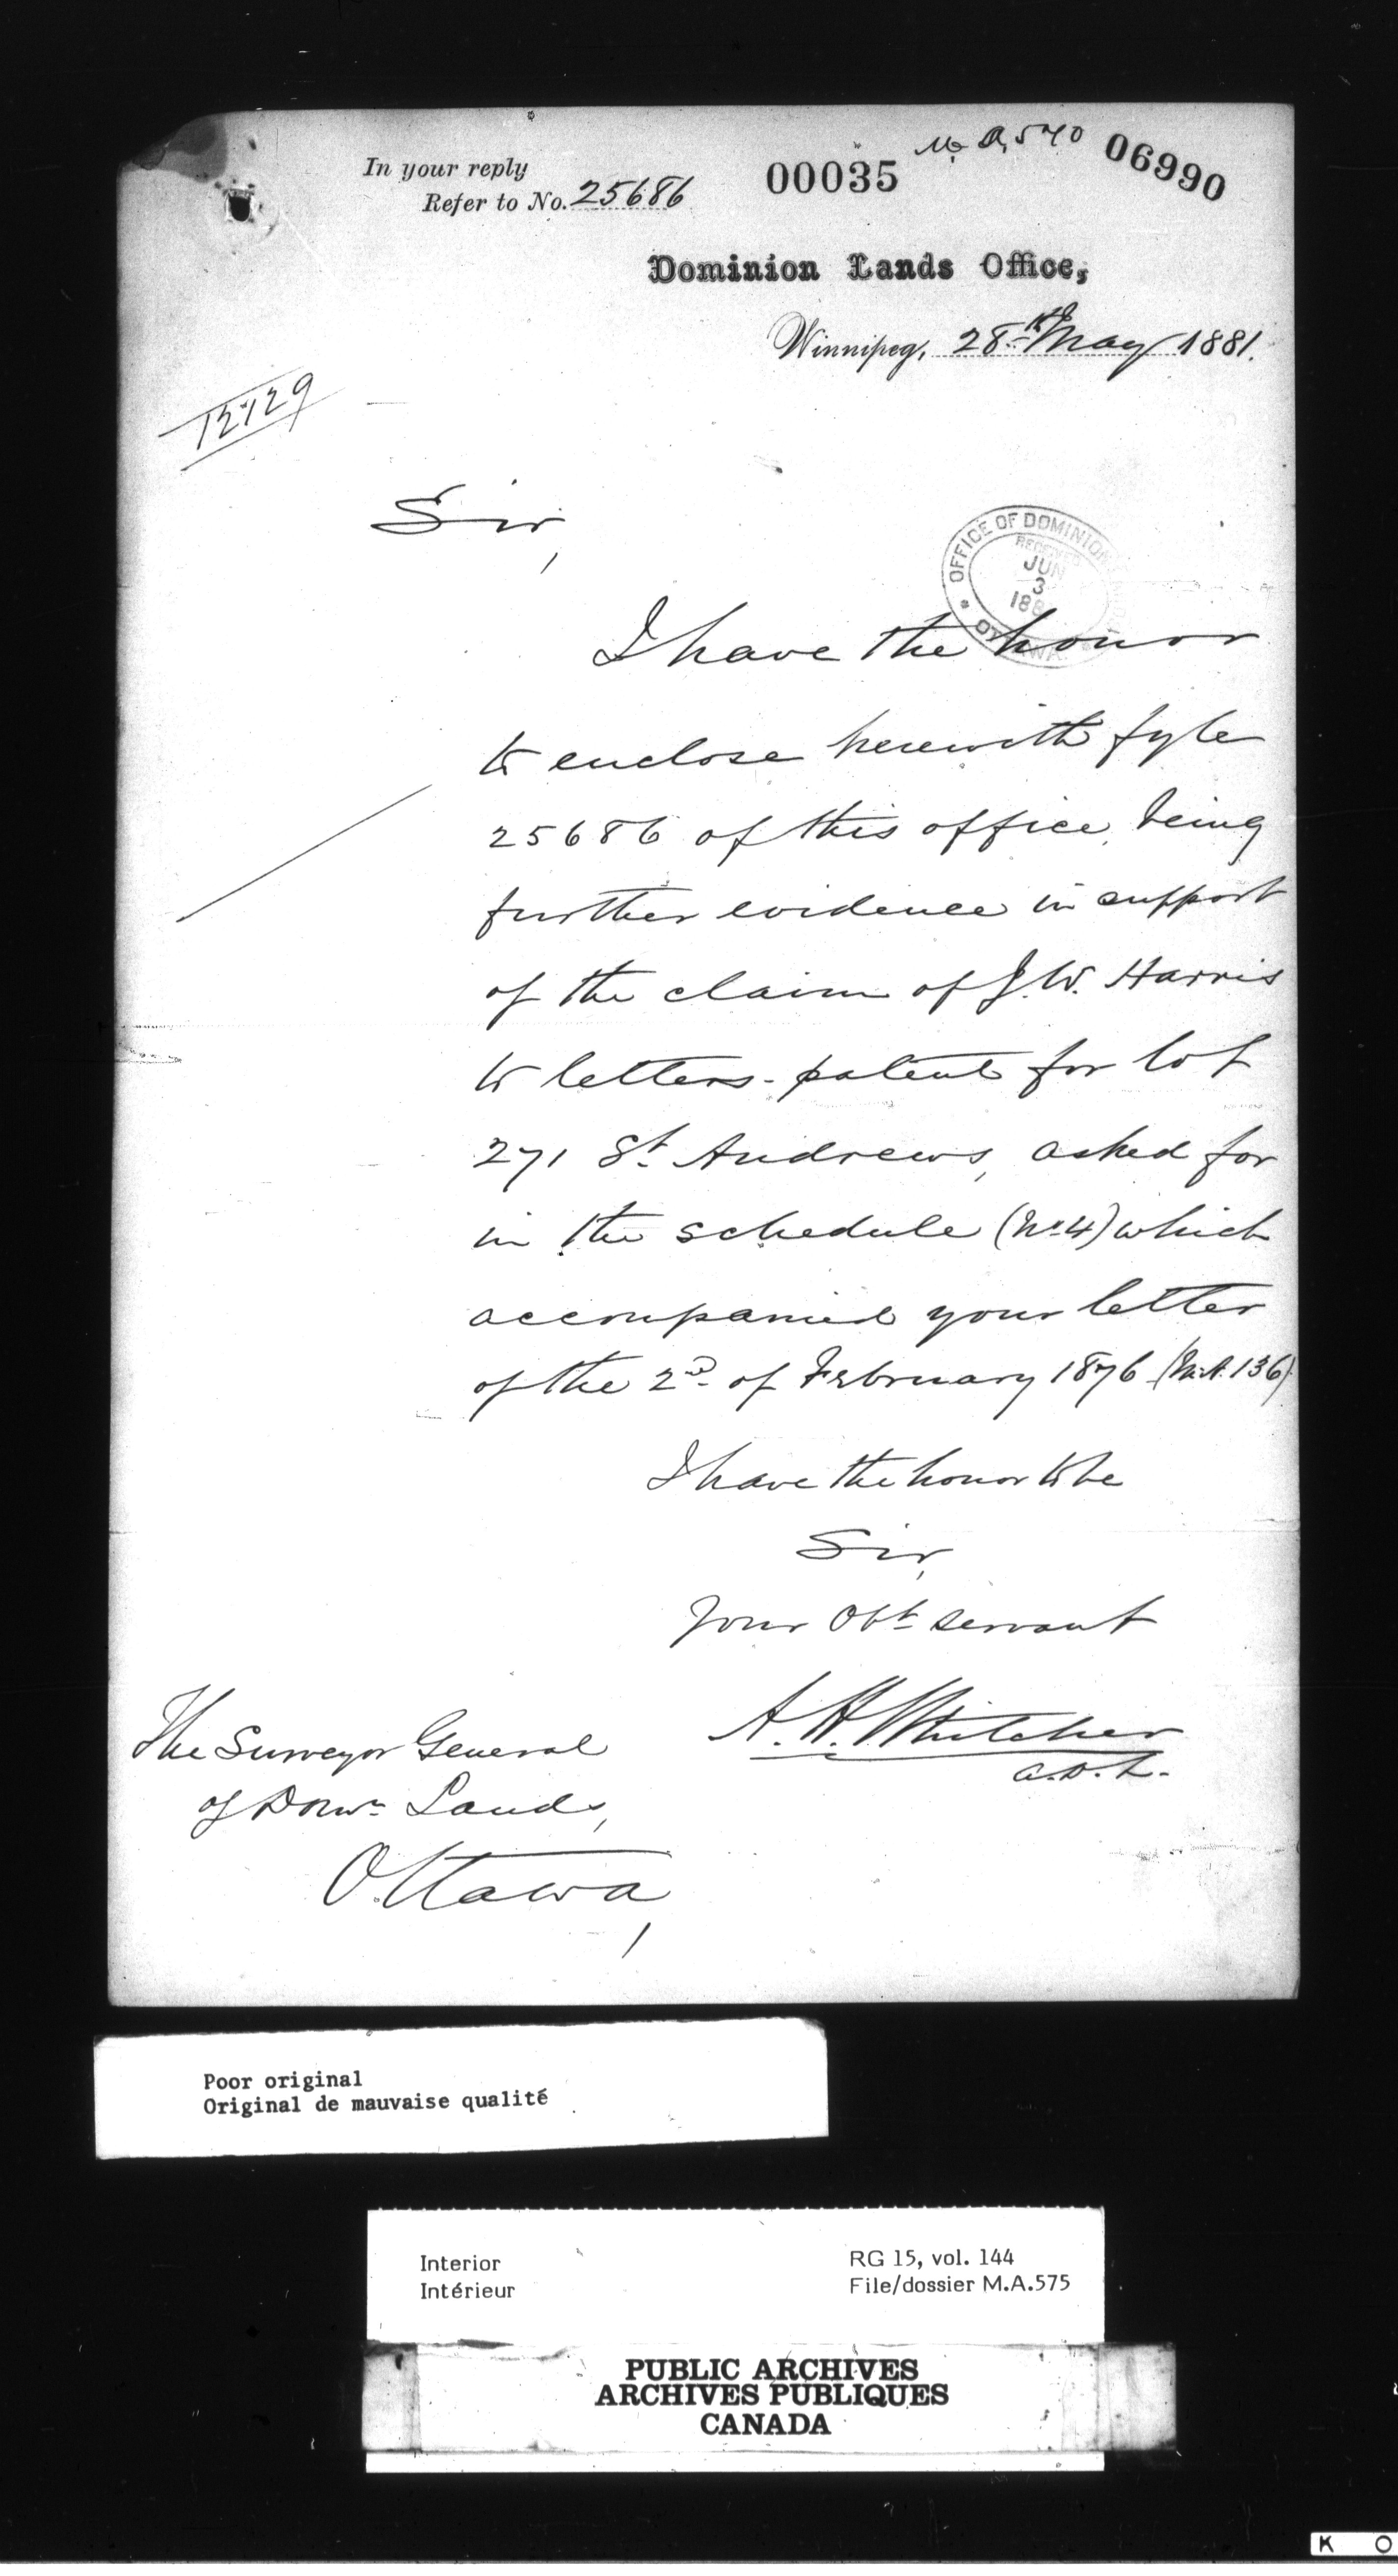 In your reply
Refer to No. 25686
00035
M. A. 570
06990
Dominion Lands Office,
Winnipeg, 28th May 1881.
12729
Sir,
OFFICE OF DOMINION
RECEIVED
JUN
3
188
OTTAWA.
I have the honor
to enclose herewith fyle
25686 of this office, being
further evidence in support
of the claim of J. W. Harris
to letters-patent for lot
271 St. Andrews, asked for
in the schedule (No 4) which
accompanied your letter
of the 2nd of February 1876 (M.A. 136).
I have the honor to be
Sir,
Your Obt servant
A. H. Whitcher
The Surveyor General
of Domn Lands,
Ottawa,
Poor original
Original de mauvaise qualité
Interior
Intérieur
RG 15, vol. 144
File/dossier M.A.575
PUBLIC ARCHIVES
ARCHIVES PUBLIQUES
CANADA
K O